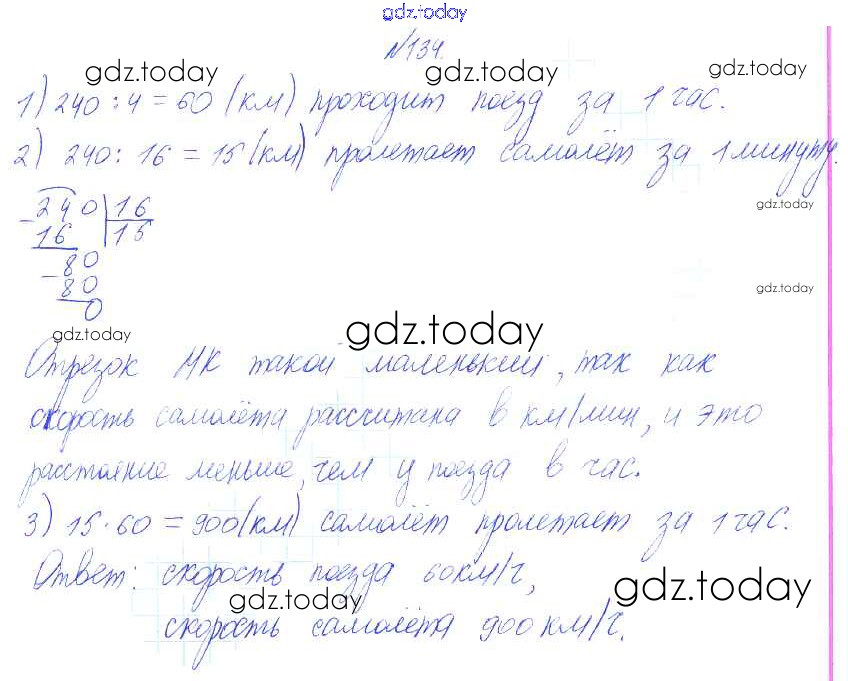 gdz.today
№134.
gdz.today gdz.today gdz.today
1) 240 : 4 = 60 (км) проходит поезд за 1 час.
2) 240 : 16 = 15 (км) пролетает самолёт за 1 минуту.
240 | 16
gdz.today
16 | 15
80
80
gdz.today
0
gdz.today
gdz.today
Отрезок МК такой маленький, так как
скорость самолёта рассчитана в км/мин, и это
расстояние меньше, чем у поезда в час.
3) 15 · 60 = 900 (км) самолёт пролетает за 1 час.
Ответ: скорость поезда 60 км/ч,
gdz.today gdz.today
скорость самолёта 900 км/ч.